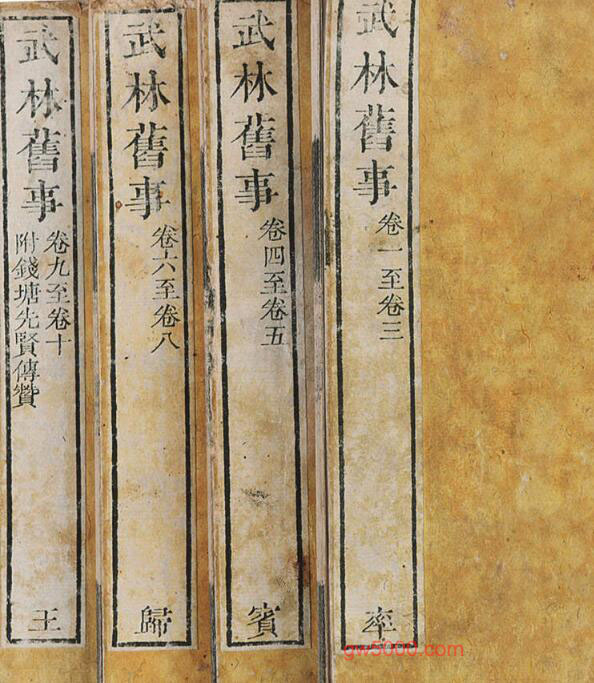 武林舊事
卷一至卷三
率
武林舊事
卷四至卷五
賓
武林舊事
卷六至卷八
歸
武林舊事
卷九至卷十
附錢塘先賢傳贊
王
gw5000.com